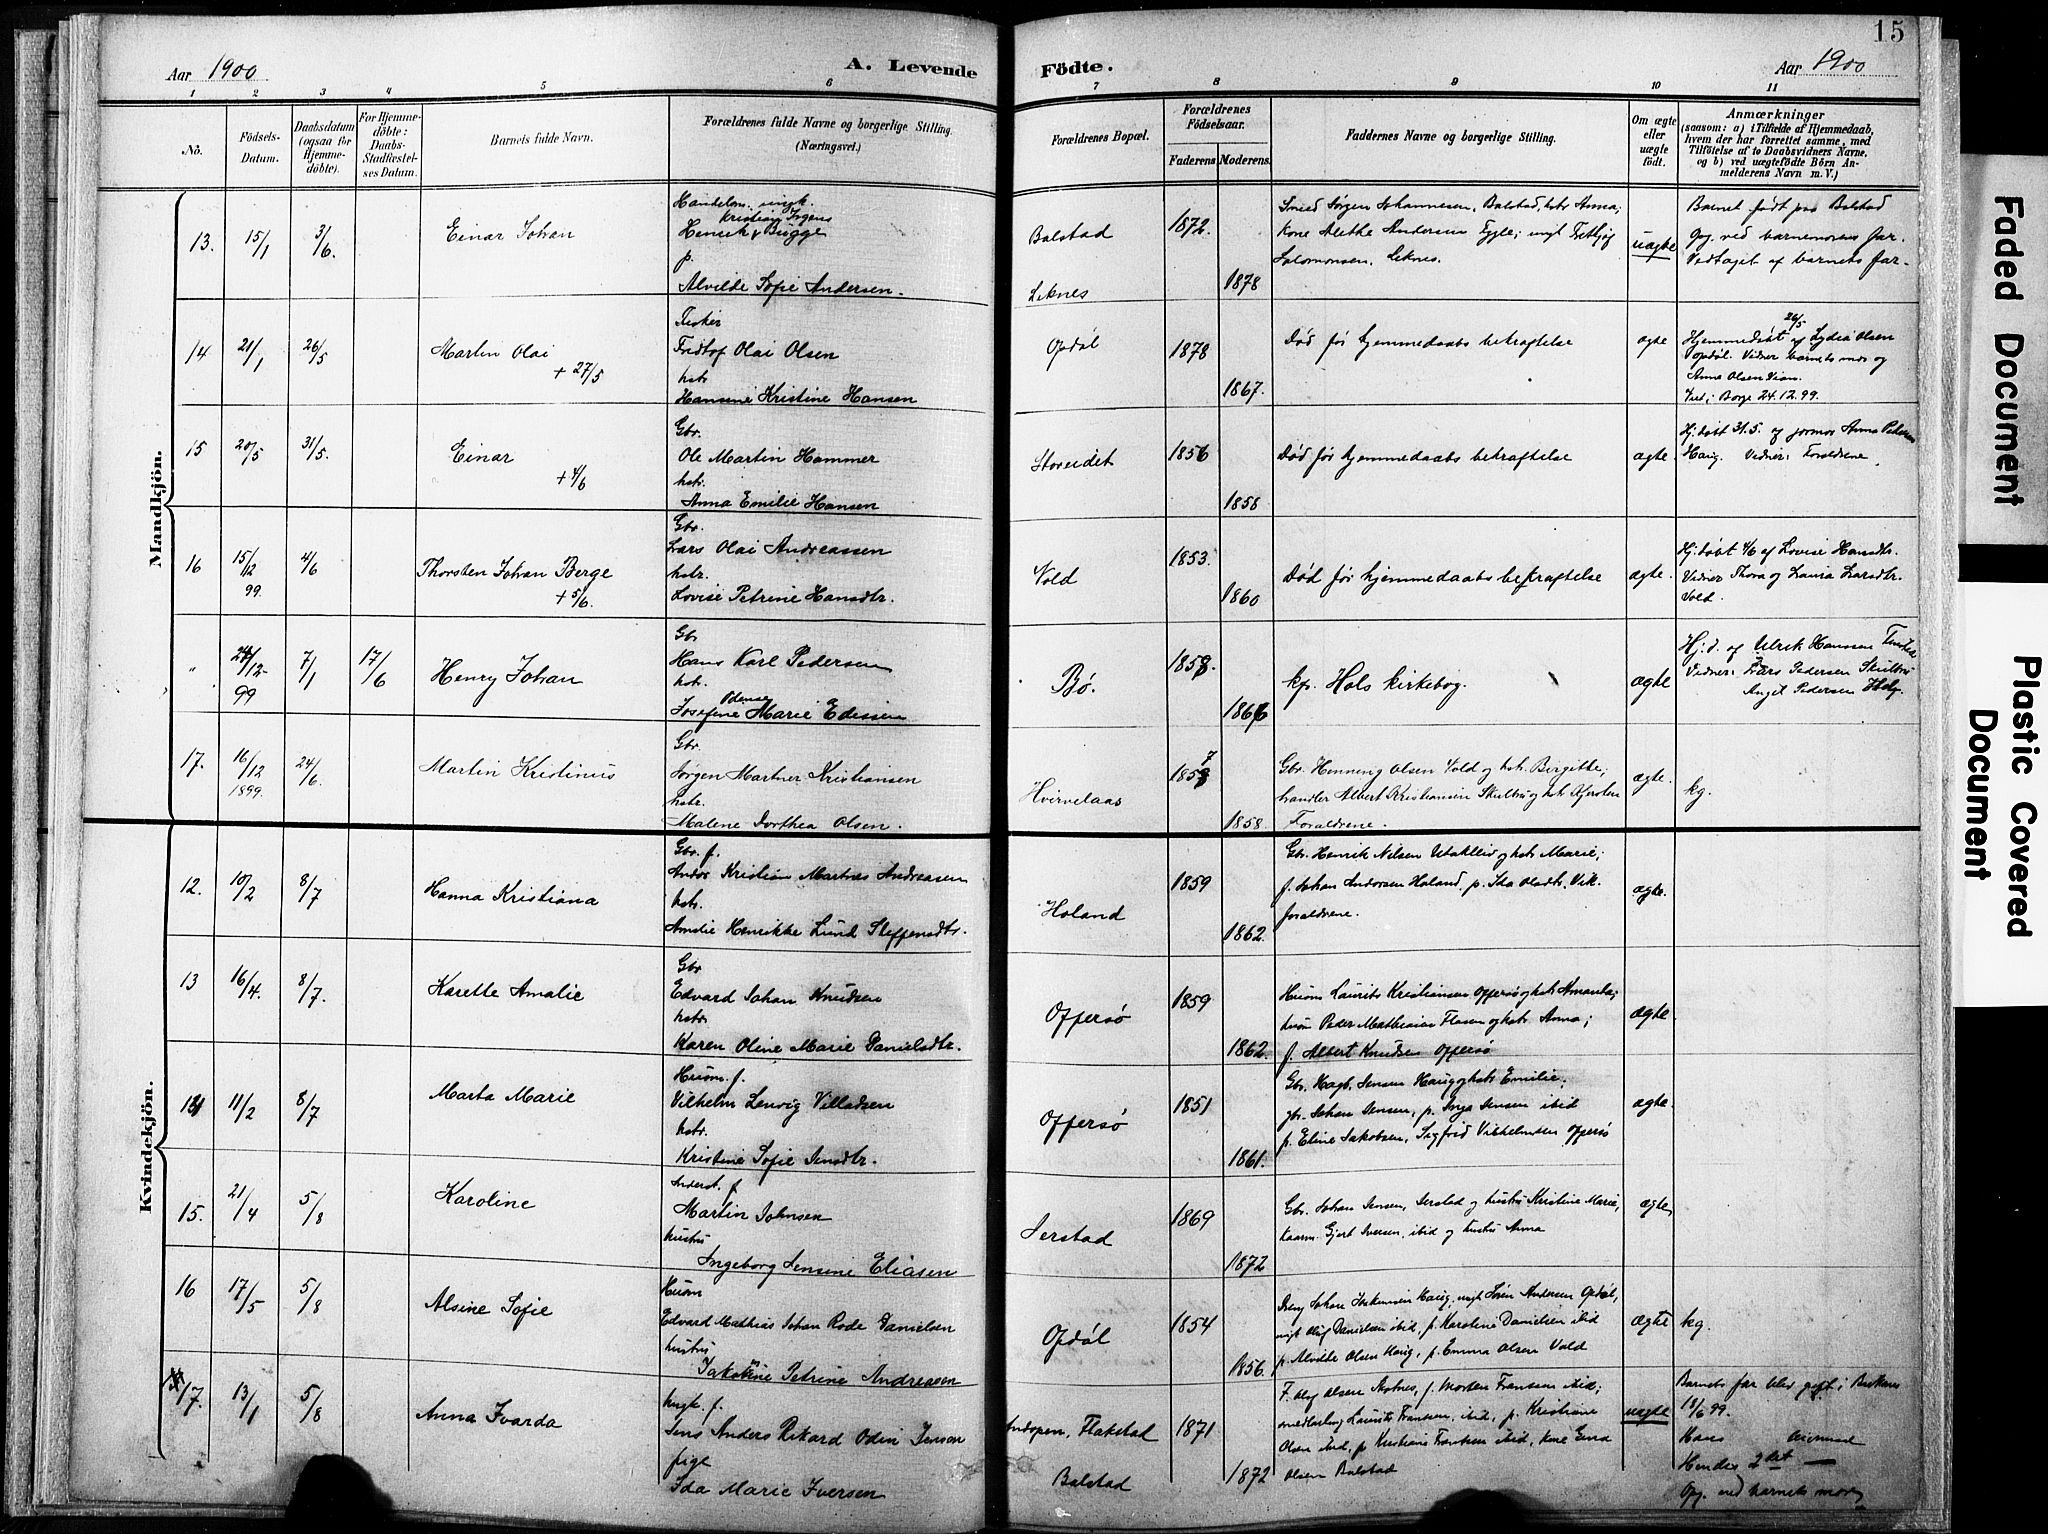 15
Aar 1900
A. Levende
Födte.
Aar 1900
1 2 3 4 5 6 7 8 9 10 11
No.
Födsels-
Datum.
Daabsdatum
(ogsaa för
Hjemme-
döbte).
For Hjemme-
döbte:
Daabs-
Stadfæstel-
ses Datum.
Barnets fulde Navn.
Forældrenes fulde Navne og borgerlige Stilling.
(Næringsvei.)
Forældrenes Bopæl.
Forældrenes
Födselsaar.
Faderens
Moderens.
Faddernes Navne og borgerlige Stilling.
Om ægte
eller
uægte
födt.
Anmærkninger
(saasom: a) i Tilfælde af Hjemmedaab,
hvem der har forrettet samme, med
Tilföielse af to Daabsvidners Navne,
og b) ved uægtefödte Börn An-
melderens Navn m. V.)
Mandkjön.
13. 15/1 3/6. Einar Johan
Handelsm. ungk.
Kristian
Henrik Bugge
p.
Alvilde Sofie Andersen.
Balstad
Leknes
1872.
1878
Smed Jørgen Johannesen, Balstad, hstr Anna;
kone Alethe Andersen Eggle; ungk
Salomonsen, Leknes.
uægte
Barnet født paa Balstad
Opg. ved barnemorens far.
Vedtaget af barnets far.
14 21/1 26/5 Martin Olai
+ 27/5
Fisker
Fridtof Olai Olsen
hstr
Hansine Kristine Hansen
Opdøl
1878
1867.
Død før hjemmedaabs bekræftelse
ægte
26/5
Hjemmedøbt af Lydia Olsen
Opdøl. Vidner barnets mor og
Anne Olsen
Viet i Borge 24.12.99.
15 20/5 31/5. Einar
+ 4/6
Gbr.
Ole Martin Hammer
hstr.
Anna Emilie Hansen
Storeidet
1856
1858
Død før hjemmedaabs bekræftelse
ægte.
Hj. døbt 31.5. af jormor Anna Pedersen
Haug. Vidner: Forældrene
16 15/12 99. 4/6 Thorsten Johan Berge
+ 5/6.
Gbr.
Lars Olai Andreassen
hstr.
Lovise Petrine Hansdtr.
Vold
1853.
1860
Død før hjemmedaabs bekræftelse
ægte.
Hj. døbt 4/6 af Lovise Hansdtr.
Vidner Thora og Laura Larsdtr.
Vold.
" 27/12- 99 7/1 17/6 Henry Johan
Gbr
Hans Karl Pedersen
hstr.
Odense
Josefine Marie Edissen
Bø.
1858
1866
kfr. Hols kirkebog.
ægte
Hj. d. af Ulrik Hansen
Vidner: Lars Pedersen Skulbru
Angel Pedersen
17. 16/12 1899. 24/6. Martin Kristinus
Gbr.
Jørgen Martner Kristiansen
hstr.
Malene Dorthea Olsen.
Hvirvelaas
7
1858
1858.
Gbr. Henning Olsen Vold og hstr. Bergitte;
handler Albert Kristiansen Skulbru og hstr. Kjersten
Forældrene.
ægte.
kg.
Kvindekjön.
12. 10/2 8/7 Hanna Kristiana
Gbr. f.
Andor Kristian Martnes Andreasen
hstr.
Amelie Henrikke Lund Steffensdtr.
Holand
1859
1862.
Gbr. Henrik Nilsen Utakleiv og hstr. Marie;
f. Johan Andersen Holand, p. Ida Olsdtr. Vik.
forældrene.
ægte.
13 16/4. 8/7. Karette Amalie
Gbr
Edvard Johan Knudsen
hstr.
Karen Oline Marie Danielsdtr.
Offersø
1859
1862.
Husm Laurits Kristiansen Offersø og hstr. Amanda;
husm Peder Mathiasen Flasen og hstr. Anna;
f. Albert Knudsen Offersø
ægte.
14 11/2 8/7 Marta Marie
Husm. f.
Vilhelm Lenvig Villadsen
hstr.
Kristine Sofie Jensdtr.
Offersø
1851
1861.
Gbr. Hagb. Jensen Haug og hstr Emilie;
gbr. Johan Jensen, p. Inga Jensen ibid
p. Eline Jakobsen, Sigfrid Vilhelmsen Offersø
ægte.
15. 21/4 5/8 Karoline
f
Martin Johnsen
hustru
Ingeborg Jensine Eliasen
Jerstad
1869
1872
Gbr. Johan Jensen, Jerstad og hustru Kristine Marie,
kaarm. Gjert Iversen, ibid og hustru Anna
ægte,
16 17/5 5/8 Alsine Sofie
Husm
Edvard Mathias Johan Rode Danielsen
hustru
Jakobine Petrine Andreasen
Opdøl
1854
1856.
Dreng Johan Haug, ungk Søren Andersen Opdøl,
ungk Oluf Danielsen ibid, p. Karoline Danielsen ibid
p. Alvilde Olsen Haug, p. Emma Olsen Vold
ægte
kg.
17. 13/1 5/8 Anna Ivarda
Ungk. f.
Jens Anders Rikard Odin Jenson
pige
Ida Marie Iversen
Andopen, Flakstad
Balstad
1871
1872
F. Olaf Olsen Skotnes, f. Morten Fransen ibid;
Laurits Fransen, ibid, p. Kristiane
Olsen ibid, p Kristiane Fransen ibid, kone Ema
Olsen Balstad
uægte
Barnets far blev gift i Buksnes
18/6 99.
Hans
Hendes 2det —
Opg. ved barnets mor
Faded Document
Plastic Covered
Document